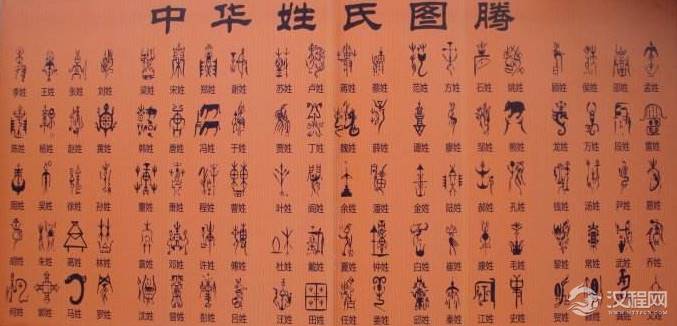 中华姓氏图腾
李姓 王姓 张姓 刘姓 梁姓 宋姓 郑姓 谢姓 苏姓 卢姓 蒋姓 蔡姓 范姓 方姓 石姓 姚姓 顾姓 侯姓 邵姓 孟姓
陈姓 杨姓 赵姓 黄姓 韩姓 唐姓 冯姓 于姓 贾姓 丁姓 魏姓 薛姓 谭姓 廖姓 邹姓 熊姓 龙姓 万姓 段姓 雷姓
周姓 吴姓 徐姓 孙姓 董姓 萧姓 程姓 曹姓 叶姓 阎姓 余姓 潘姓 金姓 陆姓 郝姓 孔姓 钱姓 汤姓 尹姓 易姓
胡姓 朱姓 高姓 林姓 袁姓 邓姓 许姓 傅姓 杜姓 戴姓 夏姓 钟姓 白姓 崔姓 康姓 毛姓 黎姓 常姓 武姓 乔姓
何姓 郭姓 马姓 罗姓 沈姓 曾姓 彭姓 吕姓 汪姓 田姓 任姓 姜姓 江姓 史姓 贺姓
汉程网
HTTPCN.COM